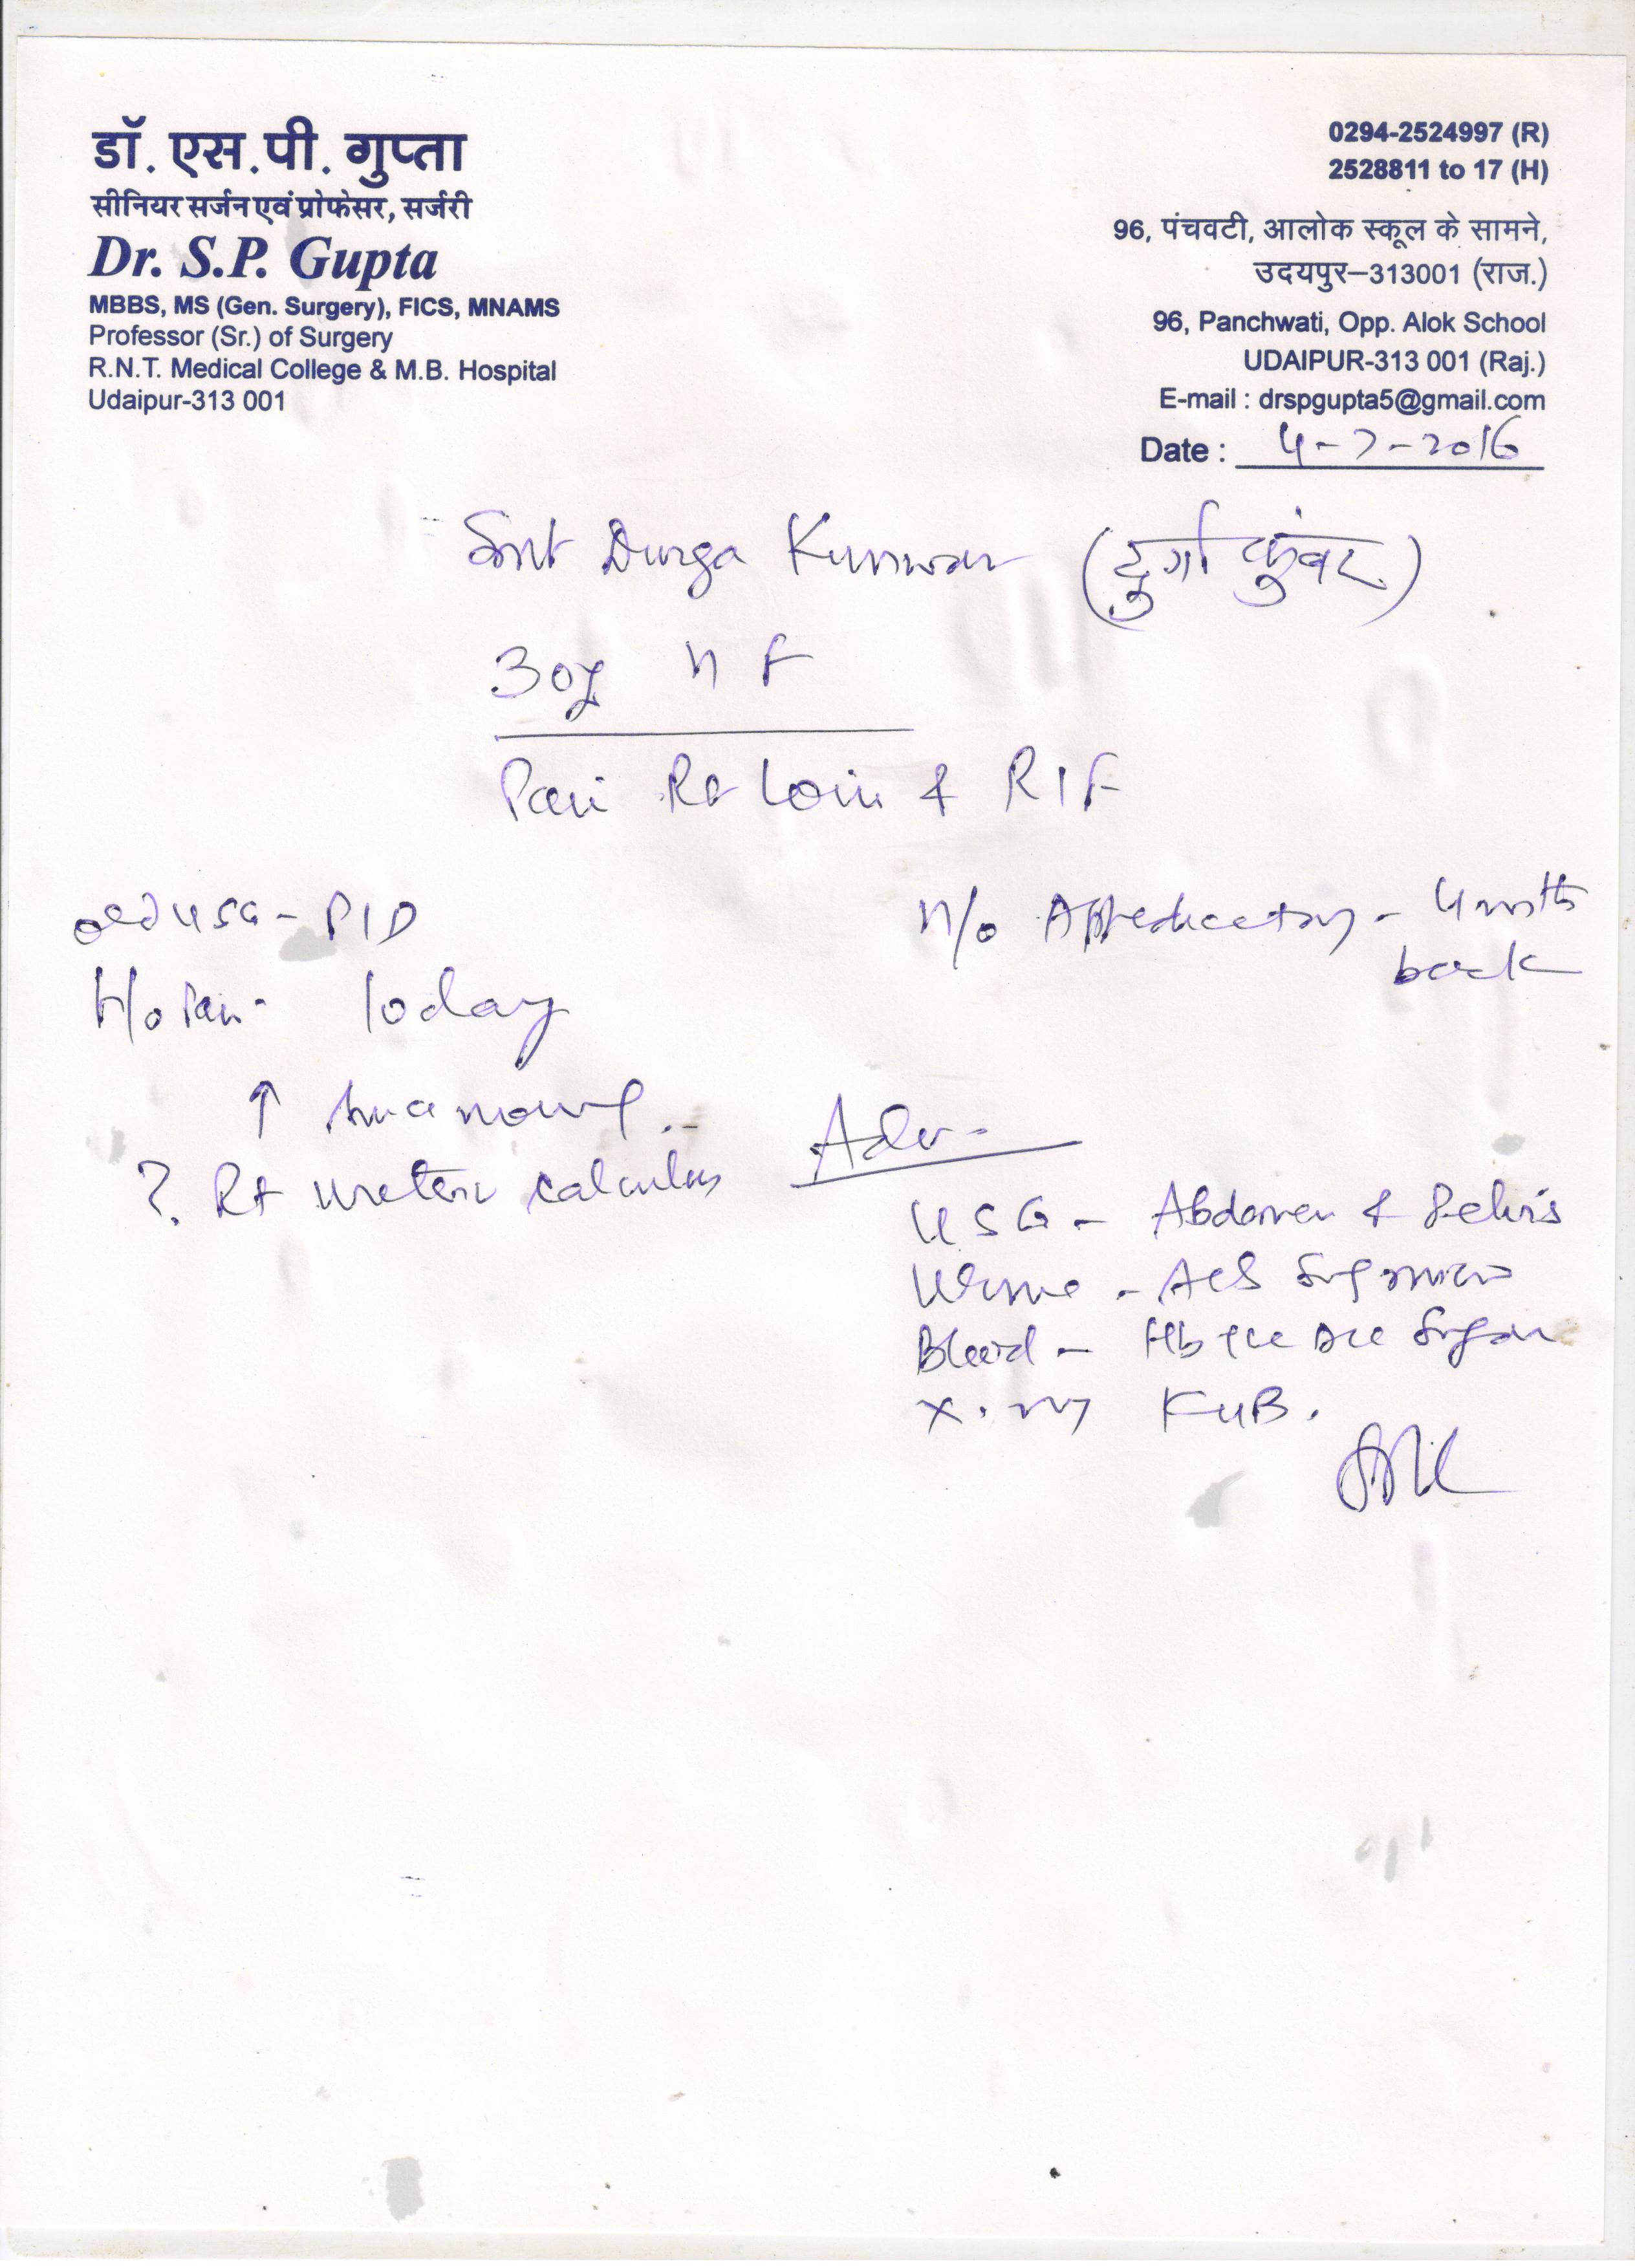 डॉ. एस.पी. गुप्ता
सीनियर सर्जन एवं प्रोफेसर, सर्जरी
Dr. S.P. Gupta
MBBS, MS (Gen. Surgery), FICS, MNAMS
Professor (Sr.) of Surgery
R.N.T. Medical College & M.B. Hospital
Udaipur-313 001
0294-2524997 (R)
2528811 to 17 (H)
96, पंचवटी, आलोक स्कूल के सामने,
उदयपुर–313001 (राज.)
96, Panchwati, Opp. Alok School
UDAIPUR-313 001 (Raj.)
E-mail : drspgupta5@gmail.com
Date : 4-7-2016
Smt Durga Kunwar (दुर्गा कुंवर)
30y F
Pain Rt Loin & RIF
old USG - PID
H/o Appendicectomy - 4 mths
back
H/o Pain -
? Rt ureteric calculus
Adv -
USG - Abdomen & Pelvis
Urine - Alb Sug micro
Blood - Hb TLC DLC Sugar
X-ray KUB.